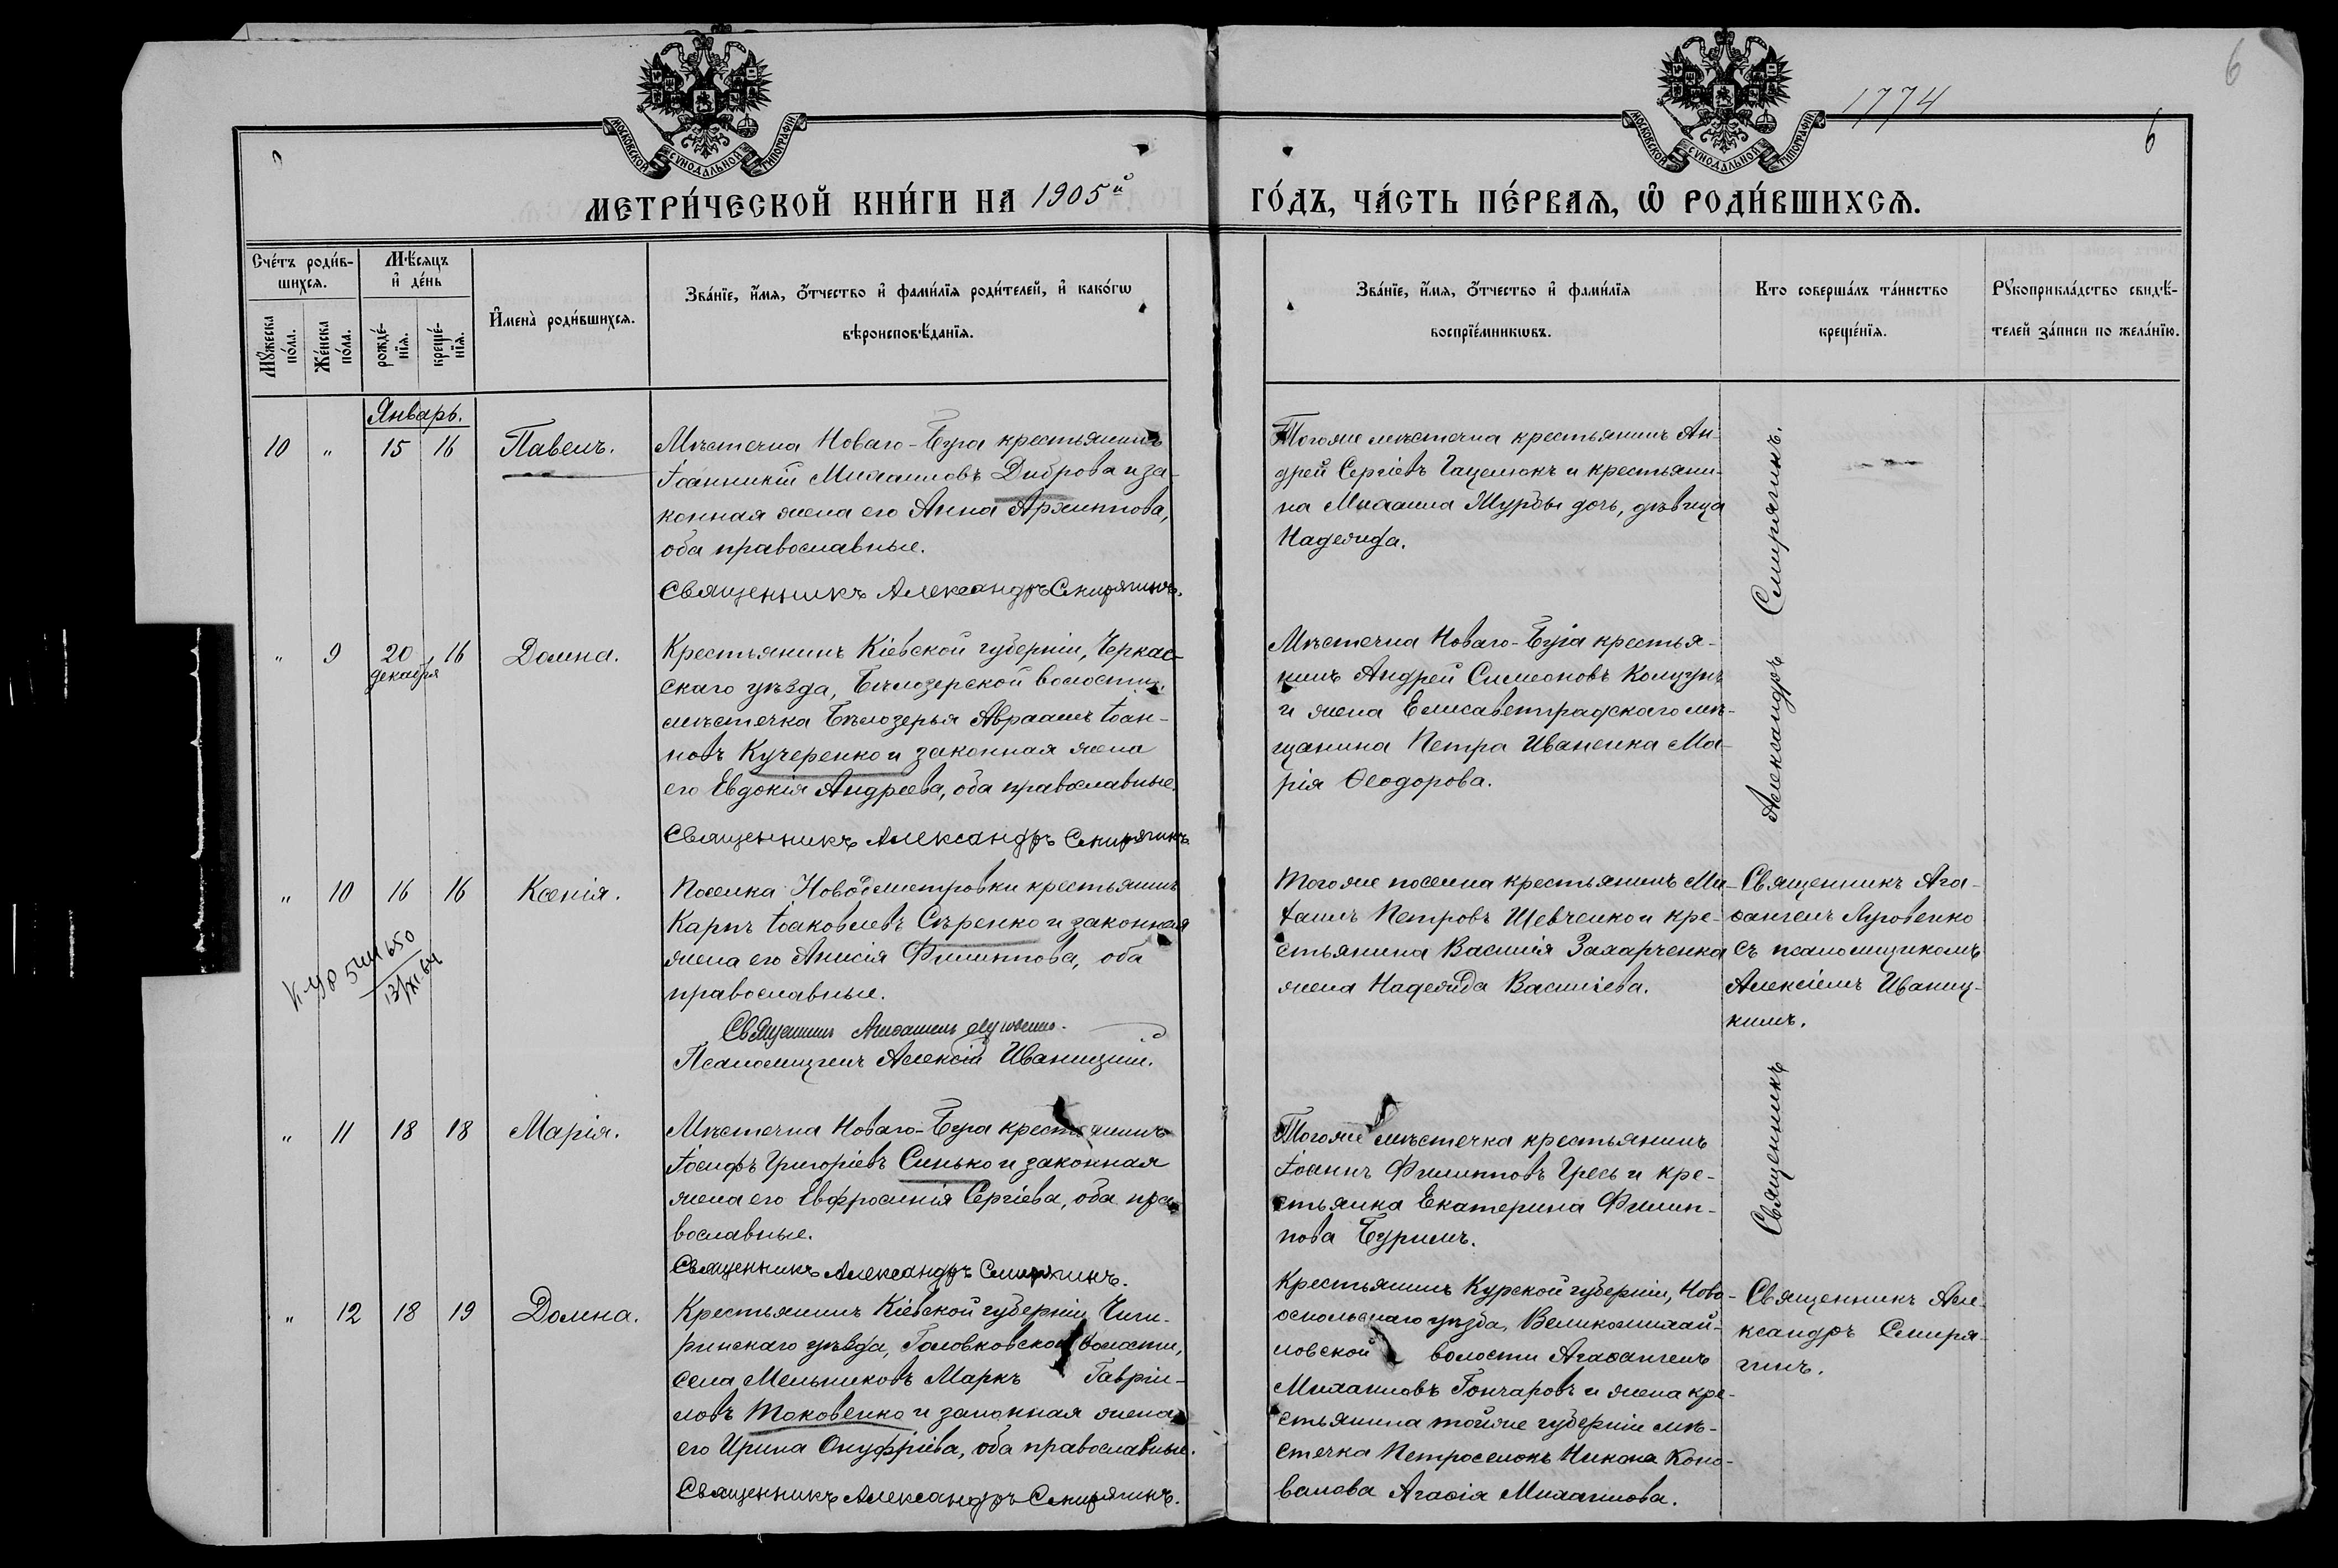 6
1774
6
МОСКОВСКОЙ СѴНОДАЛЬНОЙ ТИПОГРАФІИ
МОСКОВСКОЙ СѴНОДАЛЬНОЙ ТИПОГРАФІИ
МЕТРИ́ЧЕСКОЙ КНИ́ГИ НА 1905й
ГО́ДЪ, ЧА́СТЬ ПЕ́РВАѦ, Ѽ РОДИ́ВШИХСѦ.
Сче́тъ роди́в-
шихсѧ.
Мꙋ́жеска
по́ла.
Же́нска
по́ла.
Мѣ́сѧцъ
и҆ де́нь
рожде́-
нїѧ.
креще́-
нїѧ.
И҆мена̀ роди́вшихсѧ.
Зва́нїе, и҆́мѧ, ѻ҆́тчество и҆ фами́лїѧ роди́телей, и҆ како́гѡ
вѣроисповѣ́данїѧ.
Зва́нїе, и҆́мѧ, ѻ҆́тчество и҆ фами́лїѧ
воспрїе́мникѡвъ.
Кто соверша́лъ та́инство
креще́нїѧ.
Рꙋкоприкла́дство свидѣ́-
телей за́писи по жела́нїю.
Январь.
10 " 15 16 Павелъ.
Мѣстечка Новаго-Буга крестьянинъ
Іоанникій Михаиловъ Диброва и за-
конная жена его Анна Архиппова,
оба православные.
Священникъ Александръ Смирягинъ.
Тогоже мѣстечка крестьянинъ Ан-
дрей Сергіевъ Гацелюкъ и крестьяни-
на Михаила Мурбы дочь, дѣвица
Надежда.
" 9 20 декабря 16 Домна.
Крестьянинъ Кіевской губерніи, Черкас-
скаго уѣзда, Бѣлозерской волости,
мѣстечка Бѣлозерья Авраамъ Іоан-
новъ Кучеренко и законная жена
его Евдокія Андреева, оба православные.
Священникъ Александръ Смирягинъ
Мѣстечка Новаго-Буга крестья-
нинъ Андрей Симеоновъ
и жена Елисаветградскаго мѣ-
щанина Петра Иваненка Ма-
рія Ѳеодорова.
" 10 16 16 Ксенія.
13/XI.64
Поселка Новодмитровки крестьянинъ
Карпъ Іаковлевъ Сѣренко и законная
жена его Анисія Филиппова, оба
православные.
Священникъ Агаѳангелъ Луговенко.
Псаломщикъ Алексій Иваницкій.
Тогоже поселка крестьянинъ Ми-
хаилъ Петровъ Шевченко и кре-
стьянина Василія Захарченка
жена Надежда Василіева.
Священникъ Ага-
ѳангелъ Луговенко
съ псаломщикомъ
Алексіемъ Иваниц-
кимъ.
" 11 18 18 Марія.
Мѣстечка Новаго-Буга крестьянинъ
Іосифъ Григоріевъ Синько и законная
жена его Евфросинія Сергіева, оба пра-
вославные.
Священникъ Александръ Смирягинъ.
Тогоже мѣстечка крестьянинъ
Іоаннъ Филипповъ Гресь и кре-
стьянка Екатерина Филип-
пова Буримъ.
Священникъ Александръ Смирягинъ.
" 12 18 19 Домна.
Крестьянинъ Кіевской губерніи, Чиги-
ринскаго уѣзда, Головковской волости,
села Мельниковъ Маркъ Гавріи-
ловъ Токовенко и законная жена
его Ирина Онуфріева, оба православные.
Священникъ Александръ Смирягинъ.
Крестьянинъ Курской губерніи, Ново-
оскольскаго уѣзда, Великомихай-
ловской волости Агаѳангелъ
Михаиловъ Гончаровъ и жена кре-
стьянина тойже губерніи мѣ-
стечка Никона Коно-
валова Агаѳія Михаилова.
Священникъ Але-
ксандръ Смиря-
гинъ.